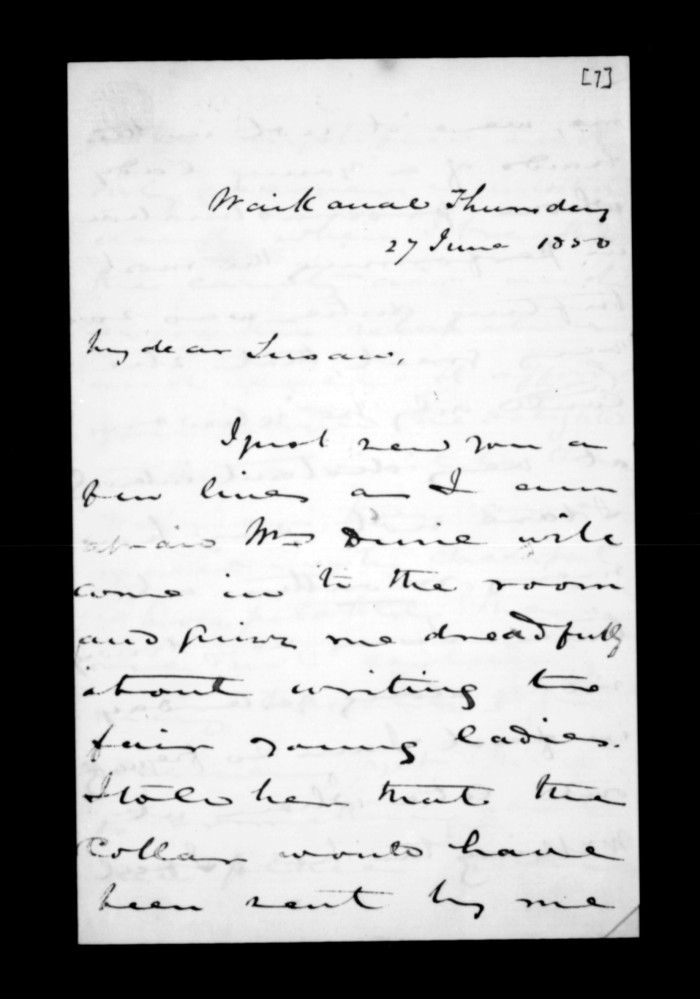 [7]
Waikanae Thursday
27 June 1850
My dear Susan,
I just send you a
few lines as I am
afraid Mrs Durie will
come in to the room
and quiz me dreadfully
about writing to
fair young ladies.
I told her that the
Collar would have
been sent by me